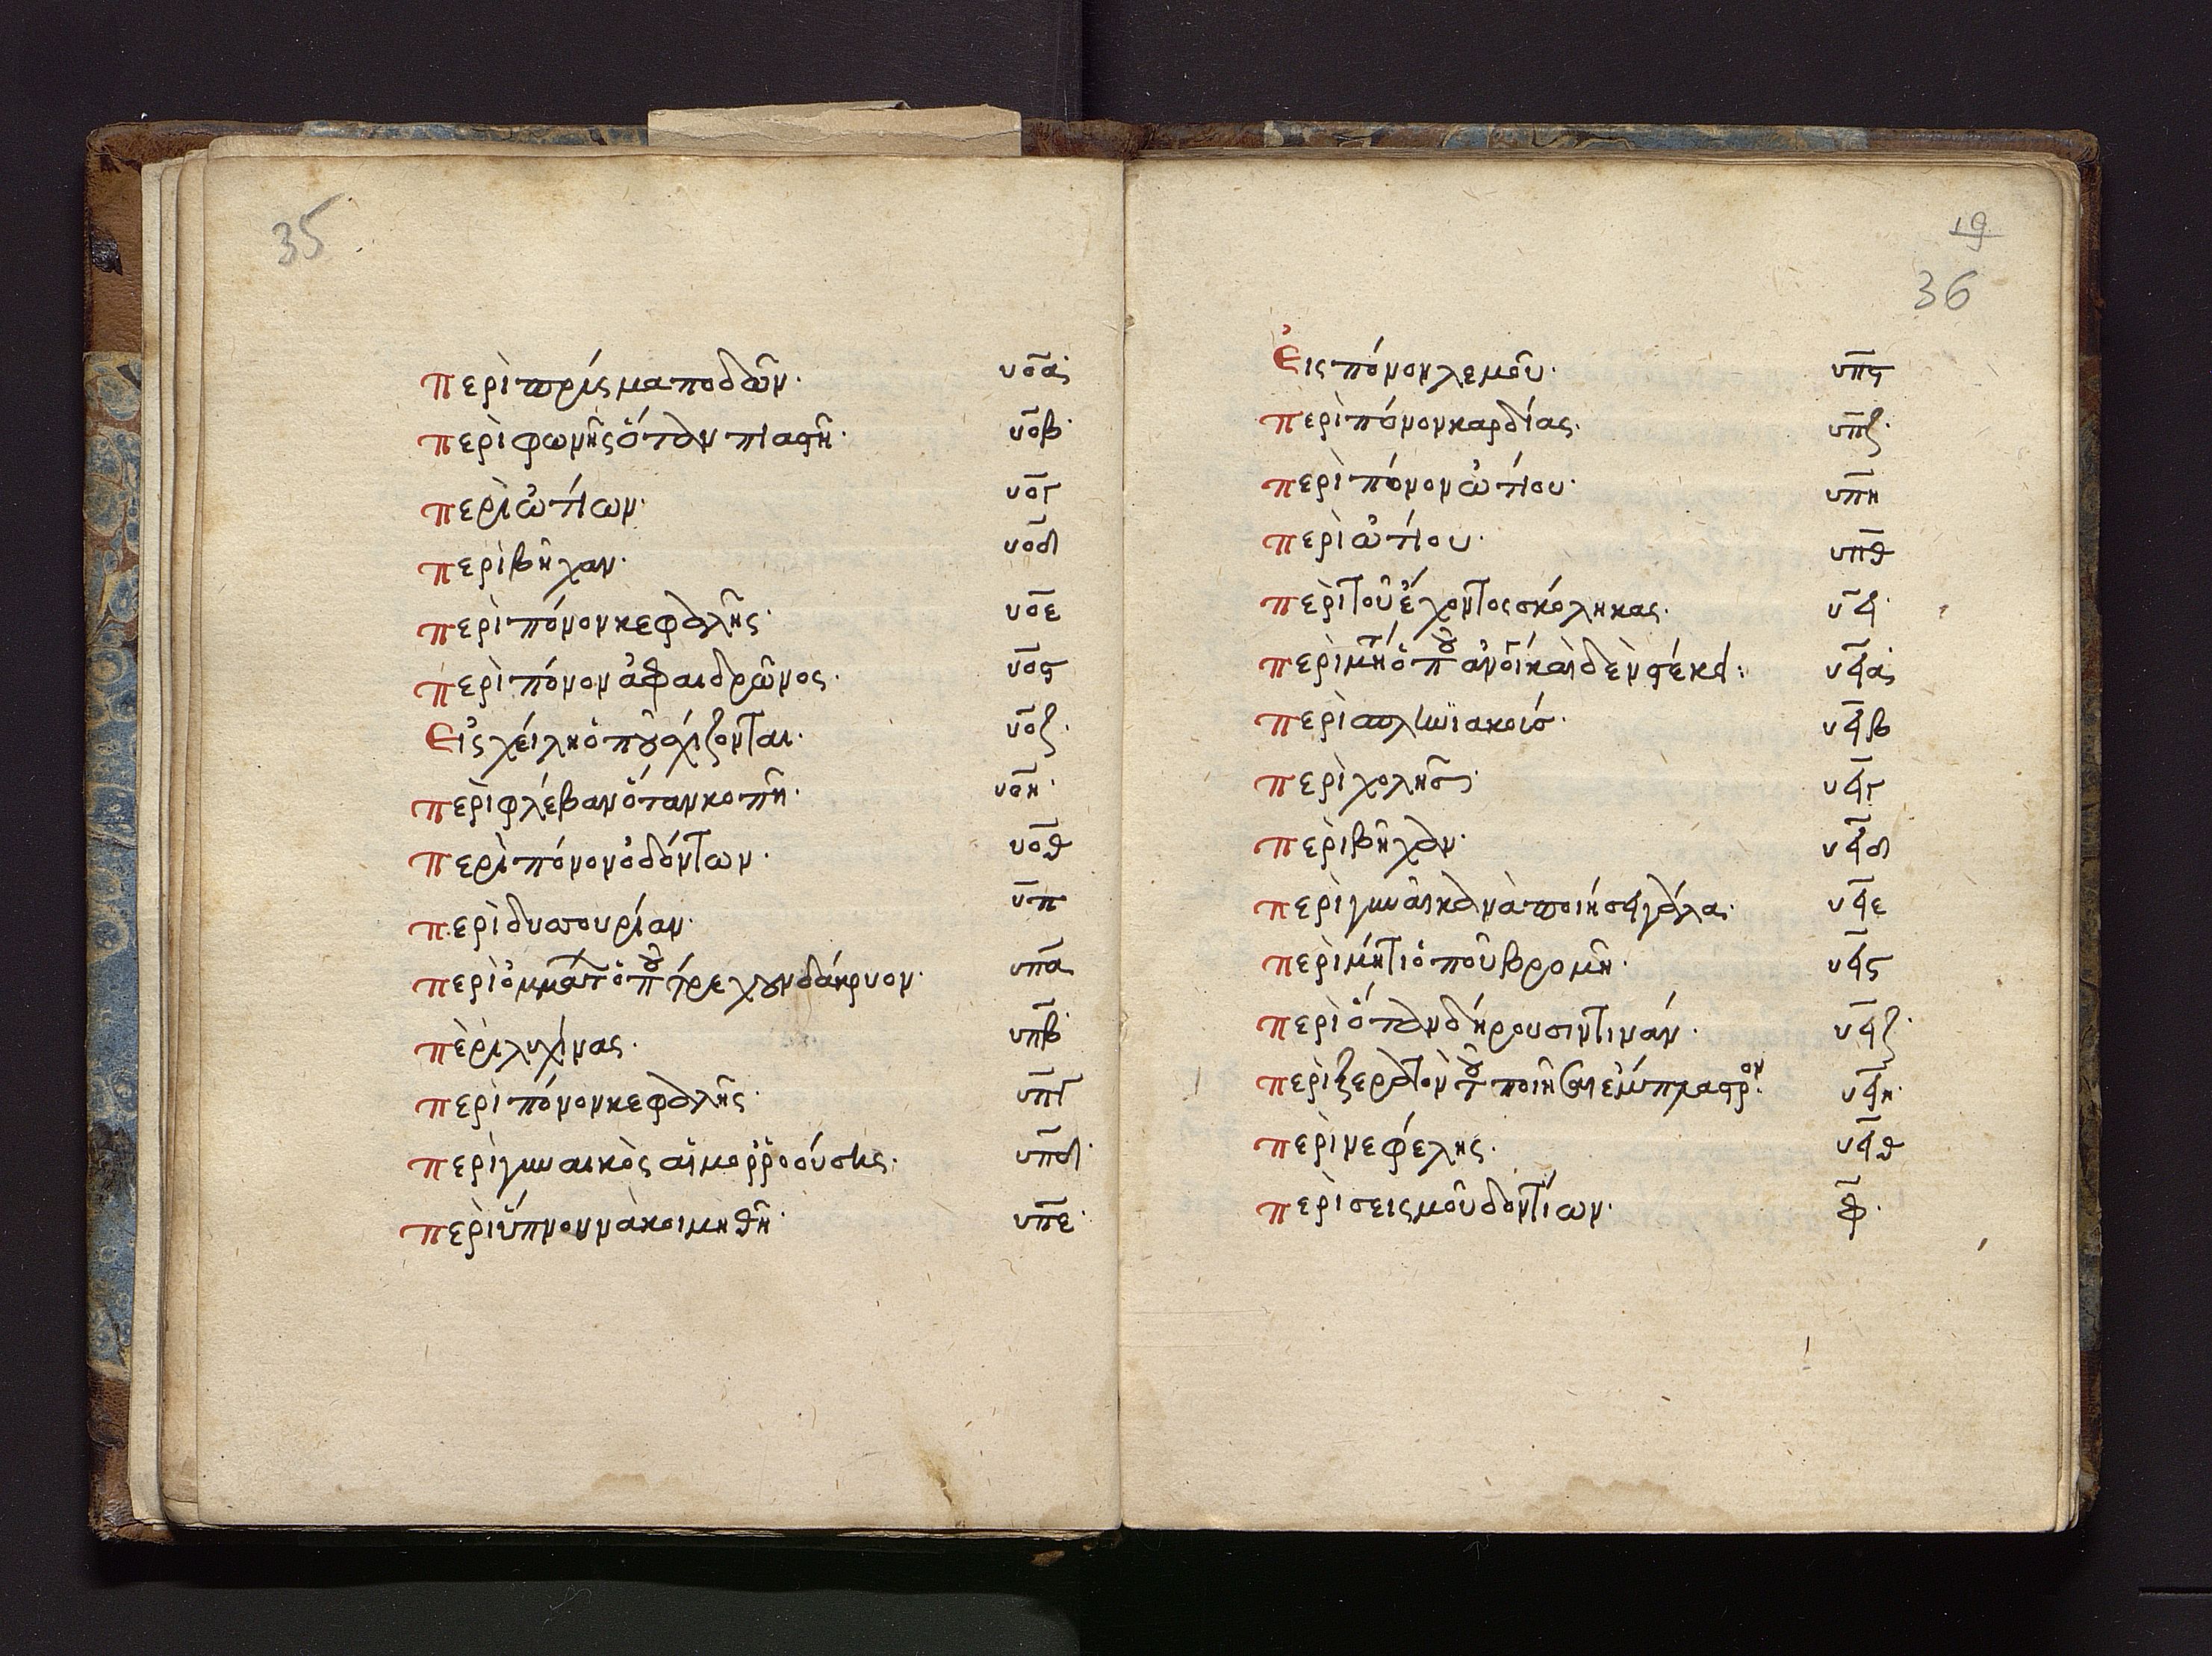 35
περὶ πρίσμα ποδῶν· υοα
περὶ φωνῆς ὅταν πιασθῆ· υοβ
περὶ ὠτίων· υογ
περὶ βῆχαν· υοδ
περὶ πόνον κεφαλῆς· υοε
περὶ πόνον ἀφαιδρῶνος· υος
Εἰς χείλη ὁποῦ σχίζονται· υοζ
περὶ φλέβαν ὅταν κοπῆ· υοη
περὶ πόνον ὀδόντων· υοθ
περὶ δυσουρίαν· υπ
περὶ ὀμμάτ ὁπ τρέχουν δάκρυον· υπα
περὶ λιχῆνας· υπβ
περὶ πόνον κεφαλῆς· υπγ
περὶ γυναικὸς αἱμορροούσης· υπδ
περὶ ὕπνον νὰ κοιμηθῆ· υπε
19
36
Εἰς πόνον λεμοῦ· υπς
περὶ πόνον καρδίας· υπζ
περὶ πόνον ὠτίου· υπη
περὶ ὠτίου· υπθ
περὶ τοῦ ἔχοντος σκόληκας· υϟ
περὶ υϟα
περὶ υϟβ
περὶ χολῆς· υϟγ
περὶ βῆχαν· υϟδ
περὶ γυναῖκα νὰ ποιήση γάλα· υϟε
περὶ μήτι ὁποῦ βρομῆ· υϟς
περὶ ὅταν δήρουσιν τινάν· υϟζ
περὶ ξερατὸν τ ποιῆσαι ἔμπλαστρον· υϟη
περὶ νεφέλης· υϟθ
περὶ σεισμοῦ δοντίων· φ